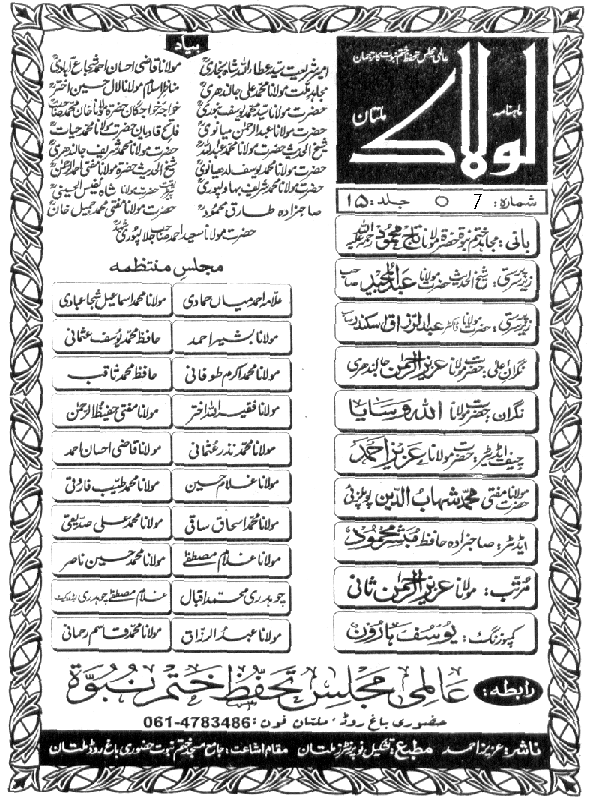 عالمی مجلس تحفظ ختم نبوت کا ترجمان
ماہنامہ
لولاک
ملتان
شمارہ: 7 ○ جلد: ۱۵
بانی: مجاہد ختم نبوت حضرت مولانا تاج محمود رحمۃ اللہ علیہ
زیر سرپرستی: شیخ الحدیث حضرت مولانا عبدالمجید صاحب
زیر سرپرستی: حضرت مولانا ڈاکٹر عبدالرزاق سکندر صاحب
نگران اعلیٰ: حضرت مولانا عزیز الرحمٰن جالندھری
نگران: حضرت مولانا اللہ وسایا
چیف ایڈیٹر: حضرت مولانا عزیز احمد
حضرت مولانا مفتی محمد شہاب الدین پوپلزئی
ایڈیٹر: صاحبزادہ حافظ مبشر محمود
مرتب: مولانا عزیز الرحمٰن ثانی
کمپوزنگ: یوسف ہارون
بیاد
امیر شریعت سید عطاء اللہ شاہ بخاری
مولانا قاضی احسان احمد شجاع آبادی
مجاہد ملت مولانا محمد علی جالندھری
مناظر اسلام مولانا لال حسین اختر
حضرت مولانا سید محمد یوسف بنوری
خواجہ خواجگان حضرت مولانا خان محمد صاحب
حضرت مولانا عبدالرحمٰن میانوی
فاتح قادیان حضرت مولانا محمد حیات
شیخ الحدیث حضرت مولانا محمد عبداللہ
حضرت مولانا محمد شریف جالندھری
حضرت مولانا محمد یوسف لدھیانوی
شیخ الحدیث حضرت مولانا مفتی احمد الرحمٰن
حضرت مولانا محمد شریف بہاولپوری
حضرت مولانا شاہ نفیس الحسینی
صاحبزادہ طارق محمود
حضرت مولانا مفتی محمد جمیل خان
حضرت مولانا سعید احمد صاحب جلالپوری
مجلس منتظمہ
علامہ احمد میاں حمادی
مولانا محمد اسماعیل شجاعبادی
مولانا بشیر احمد
حافظ محمد یوسف عثمانی
مولانا محمد اکرم طوفانی
حافظ محمد ثاقب
مولانا فقیر اللہ اختر
مولانا مفتی حفیظ الرحمٰن
مولانا محمد نذر عثمانی
مولانا قاضی احسان احمد
مولانا غلام حسین
مولانا محمد طیب فاروقی
مولانا محمد اسحاق ساقی
مولانا محمد علی صدیقی
مولانا غلام مصطفےٰ
مولانا محمد حسین ناصر
چوہدری محمد اقبال
غلام مصطفےٰ چوہدری ایڈووکیٹ
مولانا عبدالرزاق
مولانا محمد قاسم رحمانی
رابطہ: عالمی مجلس تحفظ ختم نبوۃ
حضوری باغ روڈ، ملتان فون: 061-4783486
ناشر: عزیز احمد مطبع: تشکیل نو پرنٹرز ملتان مقام اشاعت: جامع مسجد ختم نبوت حضوری باغ روڈ ملتان